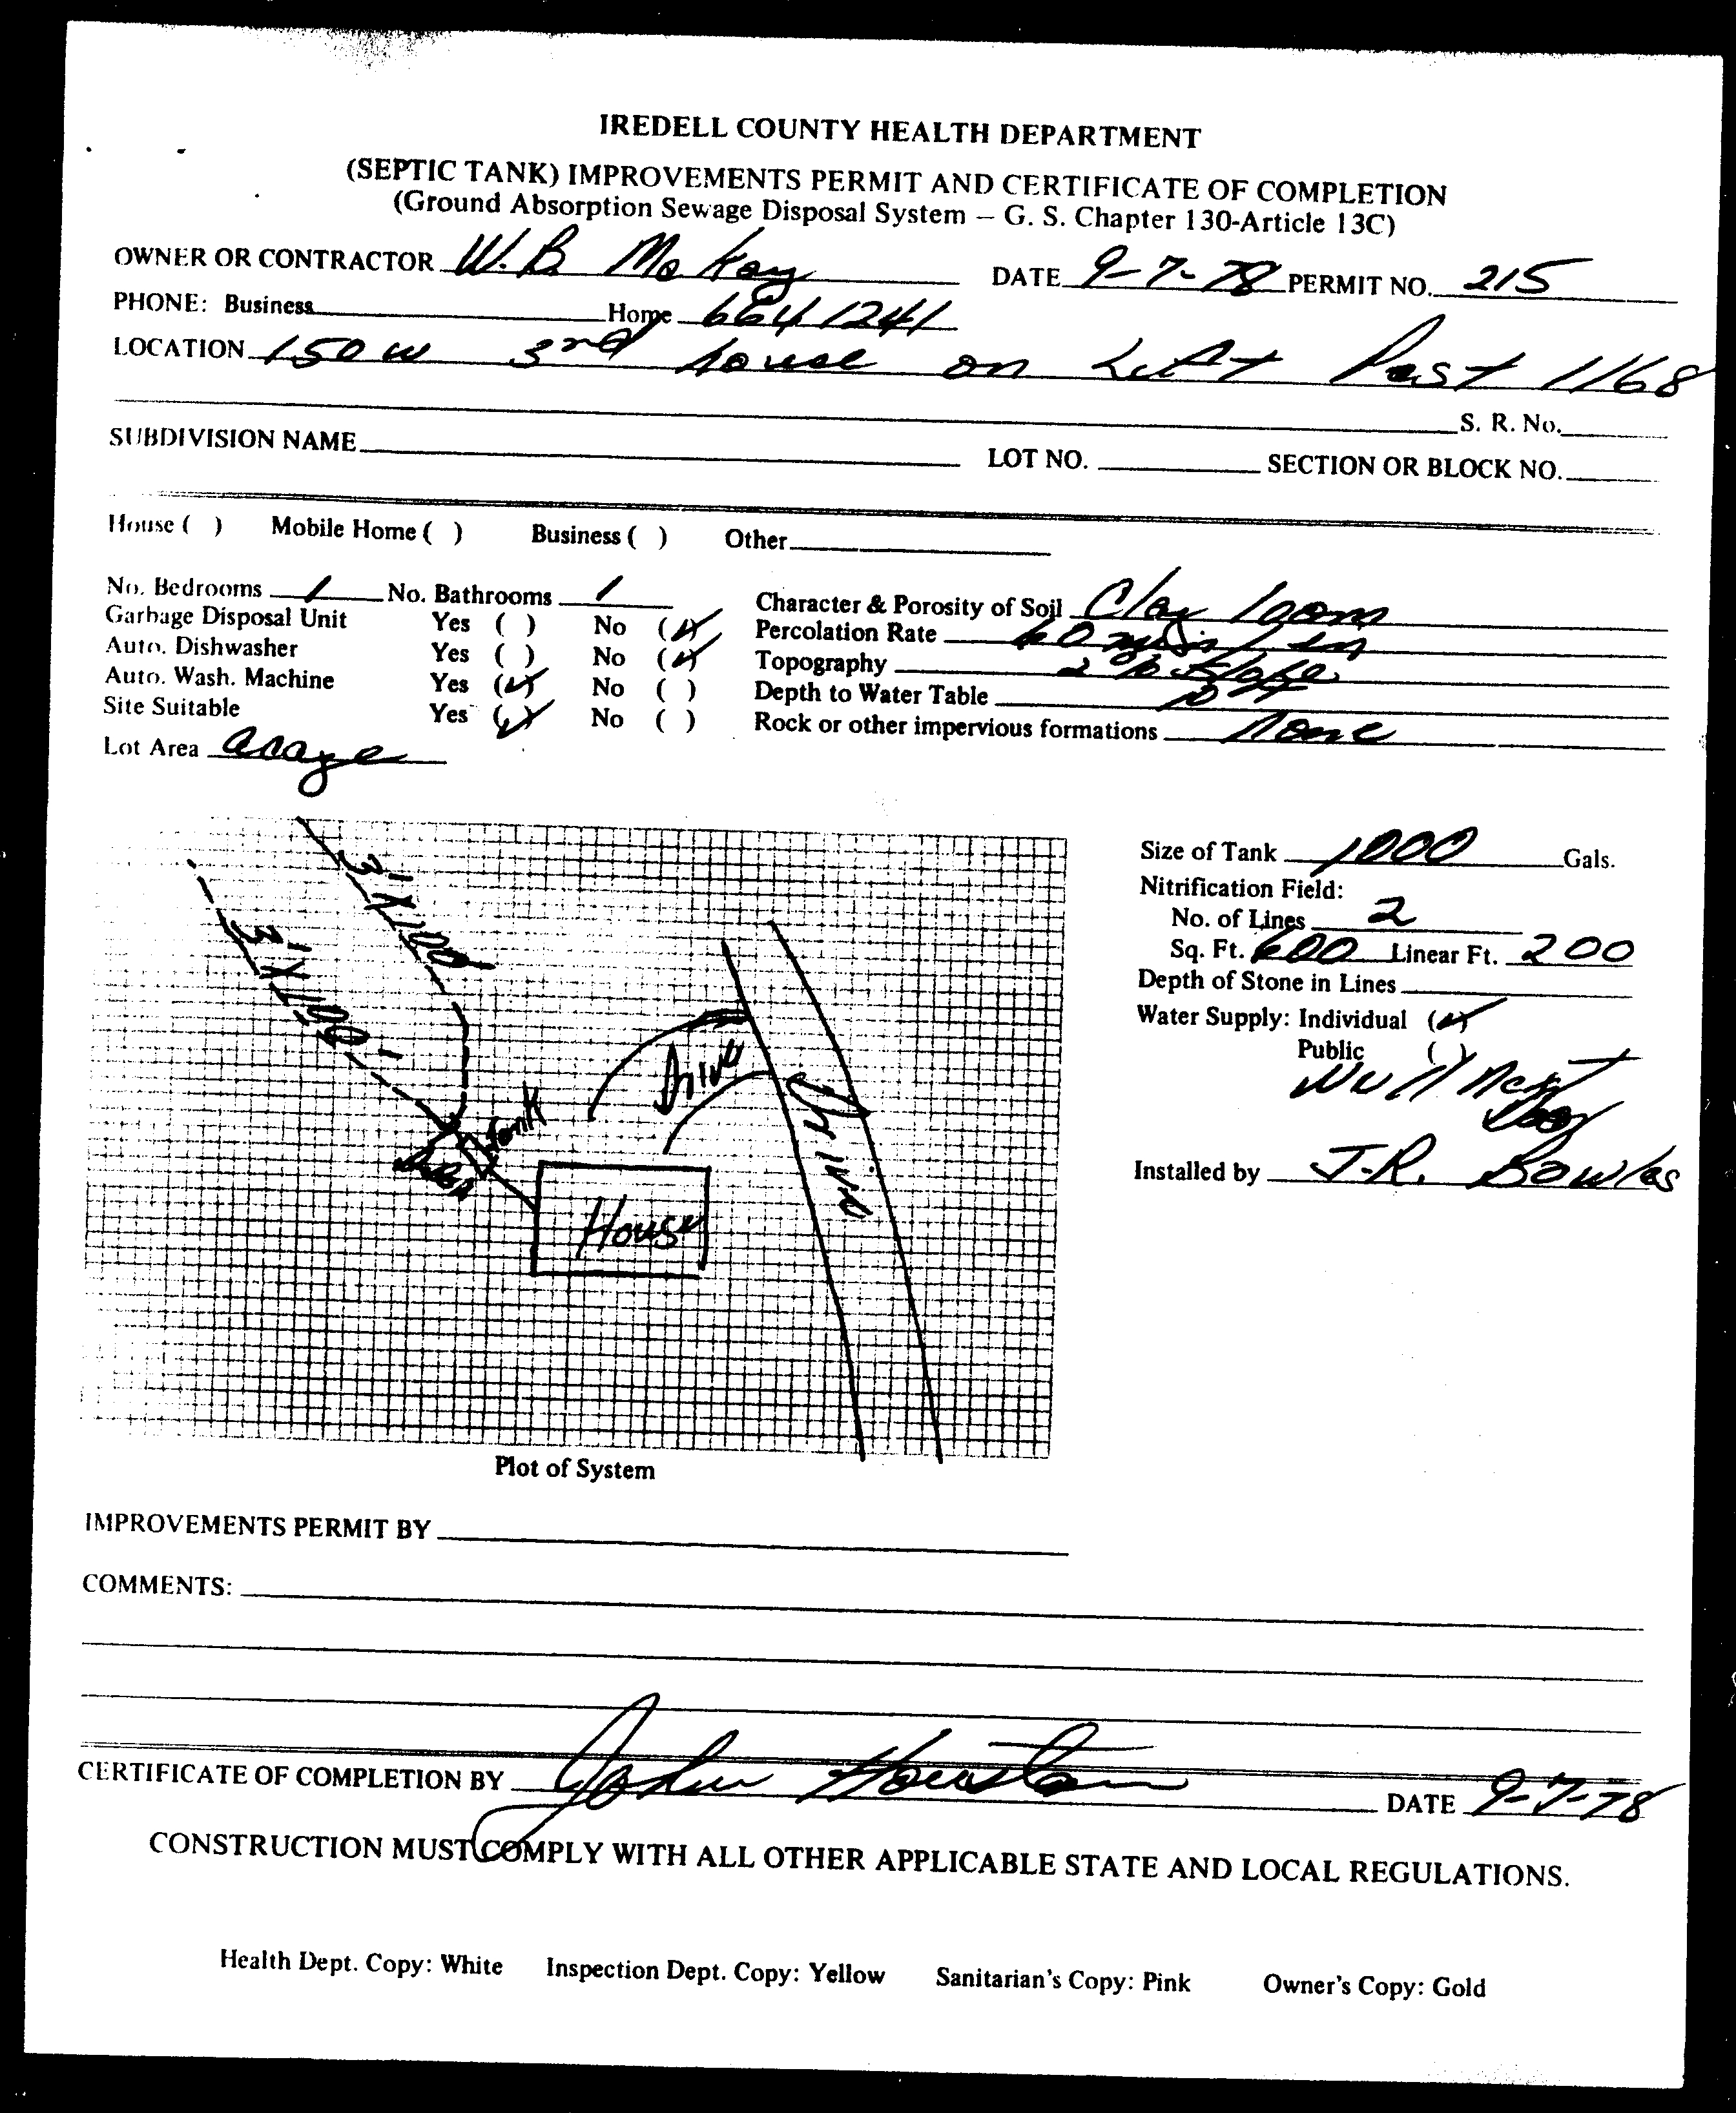 IREDELL COUNTY HEALTH DEPARTMENT
(SEPTIC TANK) IMPROVEMENTS PERMIT AND CERTIFICATE OF COMPLETION
(Ground Absorption Sewage Disposal System – G. S. Chapter 130-Article 13C)
OWNER OR CONTRACTOR W.B. McKay DATE 9-7-78 PERMIT NO. 215
PHONE: Business Home 664 1241
LOCATION 150 W 3rd house on Left Past 1168
S. R. No.
SUBDIVISION NAME LOT NO. SECTION OR BLOCK NO.
House ( ) Mobile Home ( ) Business ( ) Other
No. Bedrooms 1 No. Bathrooms 1 Character & Porosity of Soil Clay loam
Garbage Disposal Unit Yes ( ) No (✓) Percolation Rate 60 min / in
Auto. Dishwasher Yes ( ) No (✓) Topography 2 % slope
Auto. Wash. Machine Yes (✓) No ( ) Depth to Water Table
Site Suitable Yes (✓) No ( ) Rock or other impervious formations None
Lot Area
3' X 100'
3' X 100'
Drive
Tank
House
Size of Tank 1000 Gals.
Nitrification Field:
No. of Lines 2
Sq. Ft. 600 Linear Ft. 200
Depth of Stone in Lines
Water Supply: Individual (✓)
Public ( )
Well Next
Door
Installed by J.R. Bowles
Plot of System
IMPROVEMENTS PERMIT BY
COMMENTS:
CERTIFICATE OF COMPLETION BY John Houston DATE 9-7-78
CONSTRUCTION MUST COMPLY WITH ALL OTHER APPLICABLE STATE AND LOCAL REGULATIONS.
Health Dept. Copy: White Inspection Dept. Copy: Yellow Sanitarian's Copy: Pink Owner's Copy: Gold